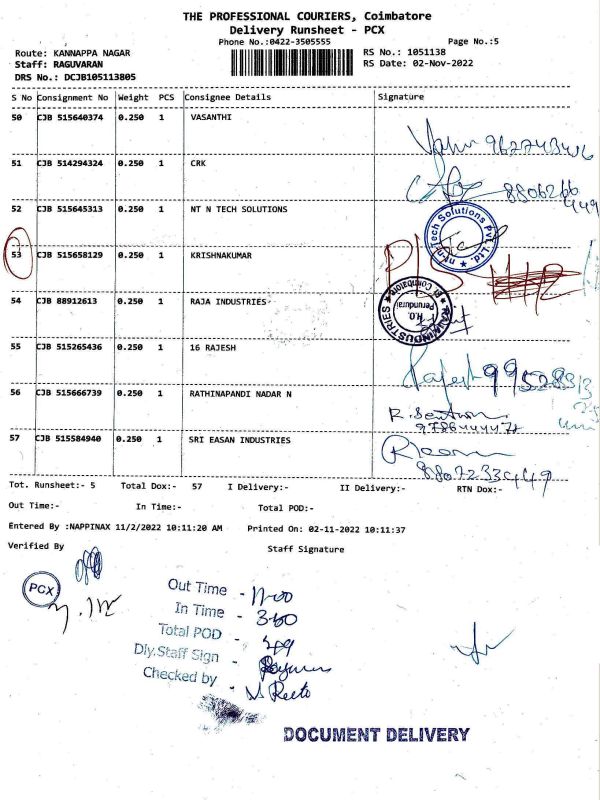 THE PROFESSIONAL COURIERS, Coimbatore
Delivery Runsheet - PCX
Phone No.:0422-3505555
Page No.:5
Route: KANNAPPA NAGAR
RS No.: 1051138
Staff: RAGUVARAN
RS Date: 02-Nov-2022
DRS No.: DCJB105113805
S No Consignment No Weight PCS Consignee Details Signature
50 CJB 515640374 0.250 1 VASANTHI
51 CJB 514294324 0.250 1 CRK
52 CJB 515645313 0.250 1 NT N TECH SOLUTIONS
nt-n Tech Solutions Pvt. Ltd.
53 CJB 515658129 0.250 1 KRISHNAKUMAR
54 CJB 88912613 0.250 1 RAJA INDUSTRIES
RAJA INDUSTRIES
H.O.
Perundurai
Coimbatore
55 CJB 515265436 0.250 1 16 RAJESH
Rajesh
56 CJB 515666739 0.250 1 RATHINAPANDI NADAR N
57 CJB 515584940 0.250 1 SRI EASAN INDUSTRIES
Tot. Runsheet:- 5 Total Dox:- 57 I Delivery:- II Delivery:- RTN Dox:-
Out Time:- In Time:- Total POD:-
Entered By :NAPPINAX 11/2/2022 10:11:20 AM Printed On: 02-11-2022 10:11:37
Verified By Staff Signature
PCX
Out Time - 11-00
In Time -
Total POD -
Dly.Staff Sign -
Checked by -
DOCUMENT DELIVERY